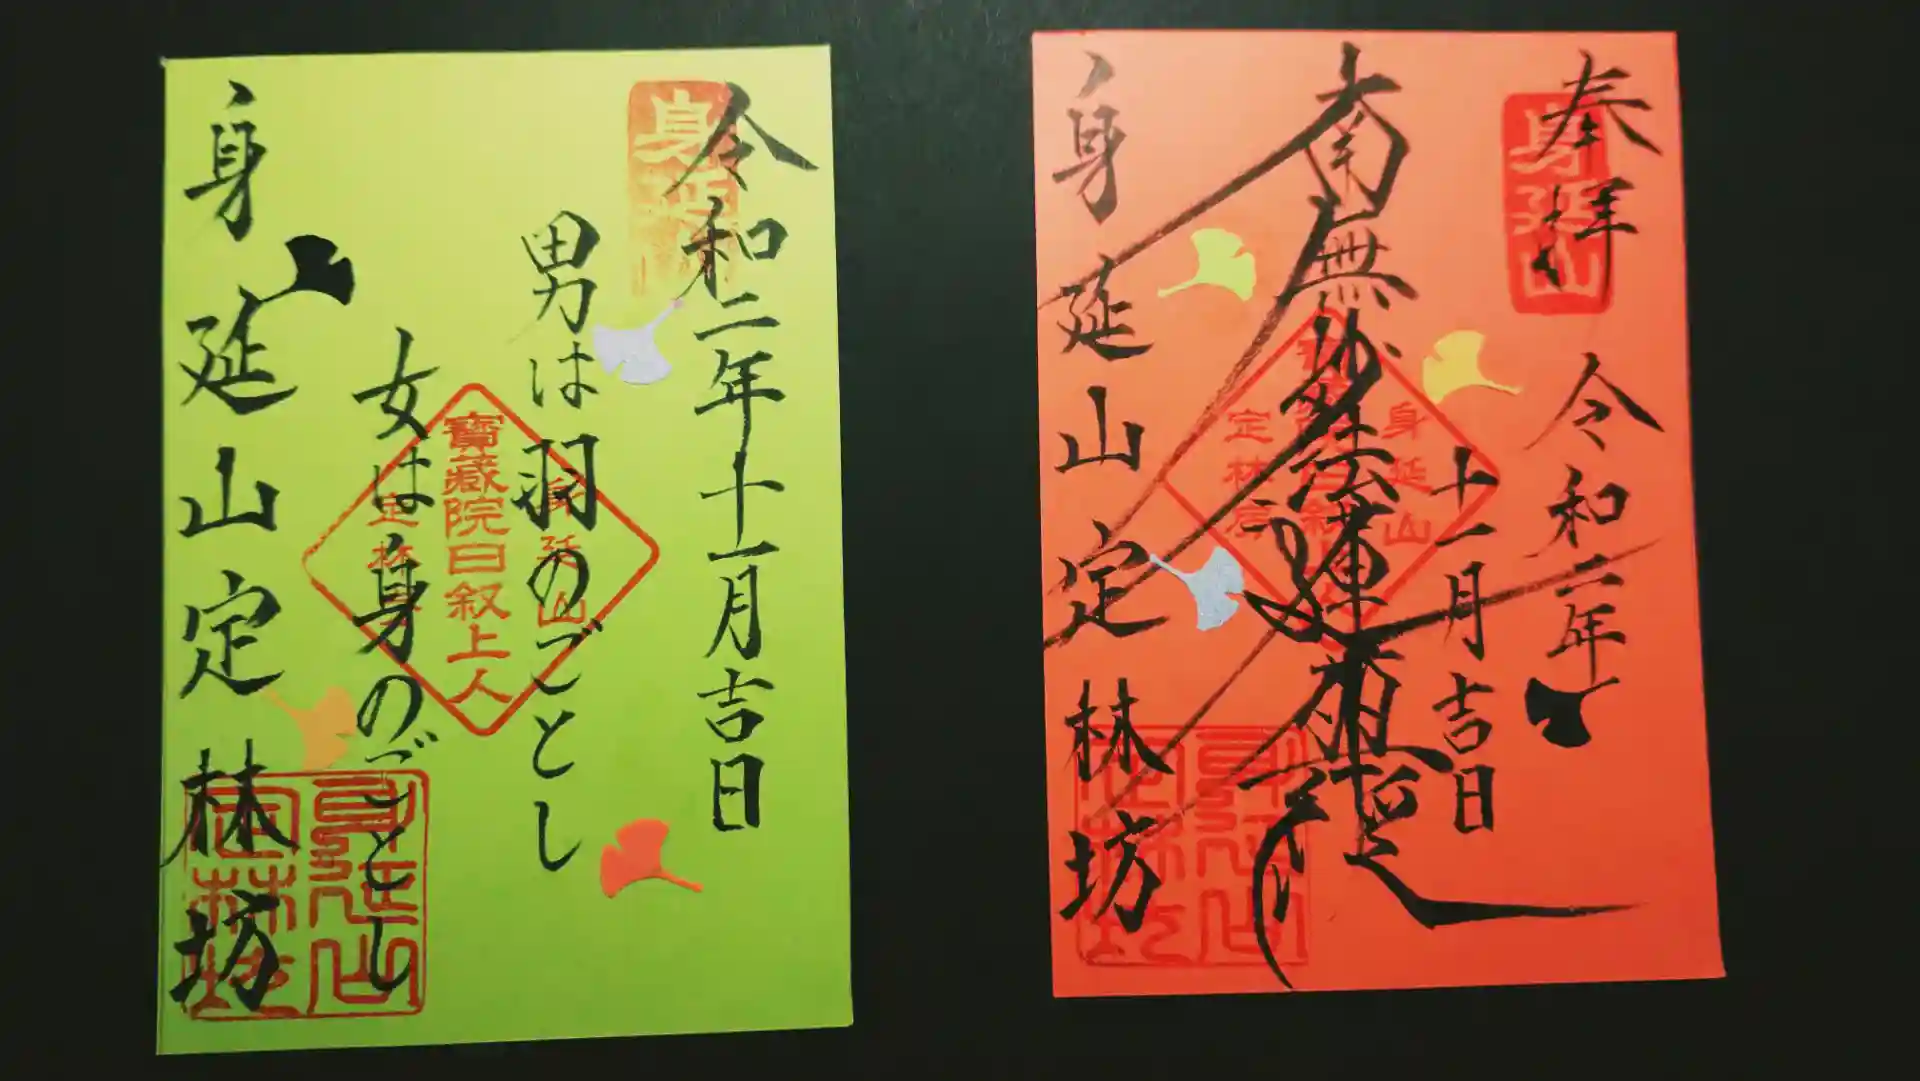 令和二年十一月吉日
身延山
男は羽のごとし
女は身のごとし
身延山
寶蔵院日叙上人
定林坊
身延山定林坊
身延山
定林坊
奉拝 令和二年
身延山
十一月吉日
南無妙法蓮華経
身延山
定林坊
身延山定林坊
身延山
定林坊